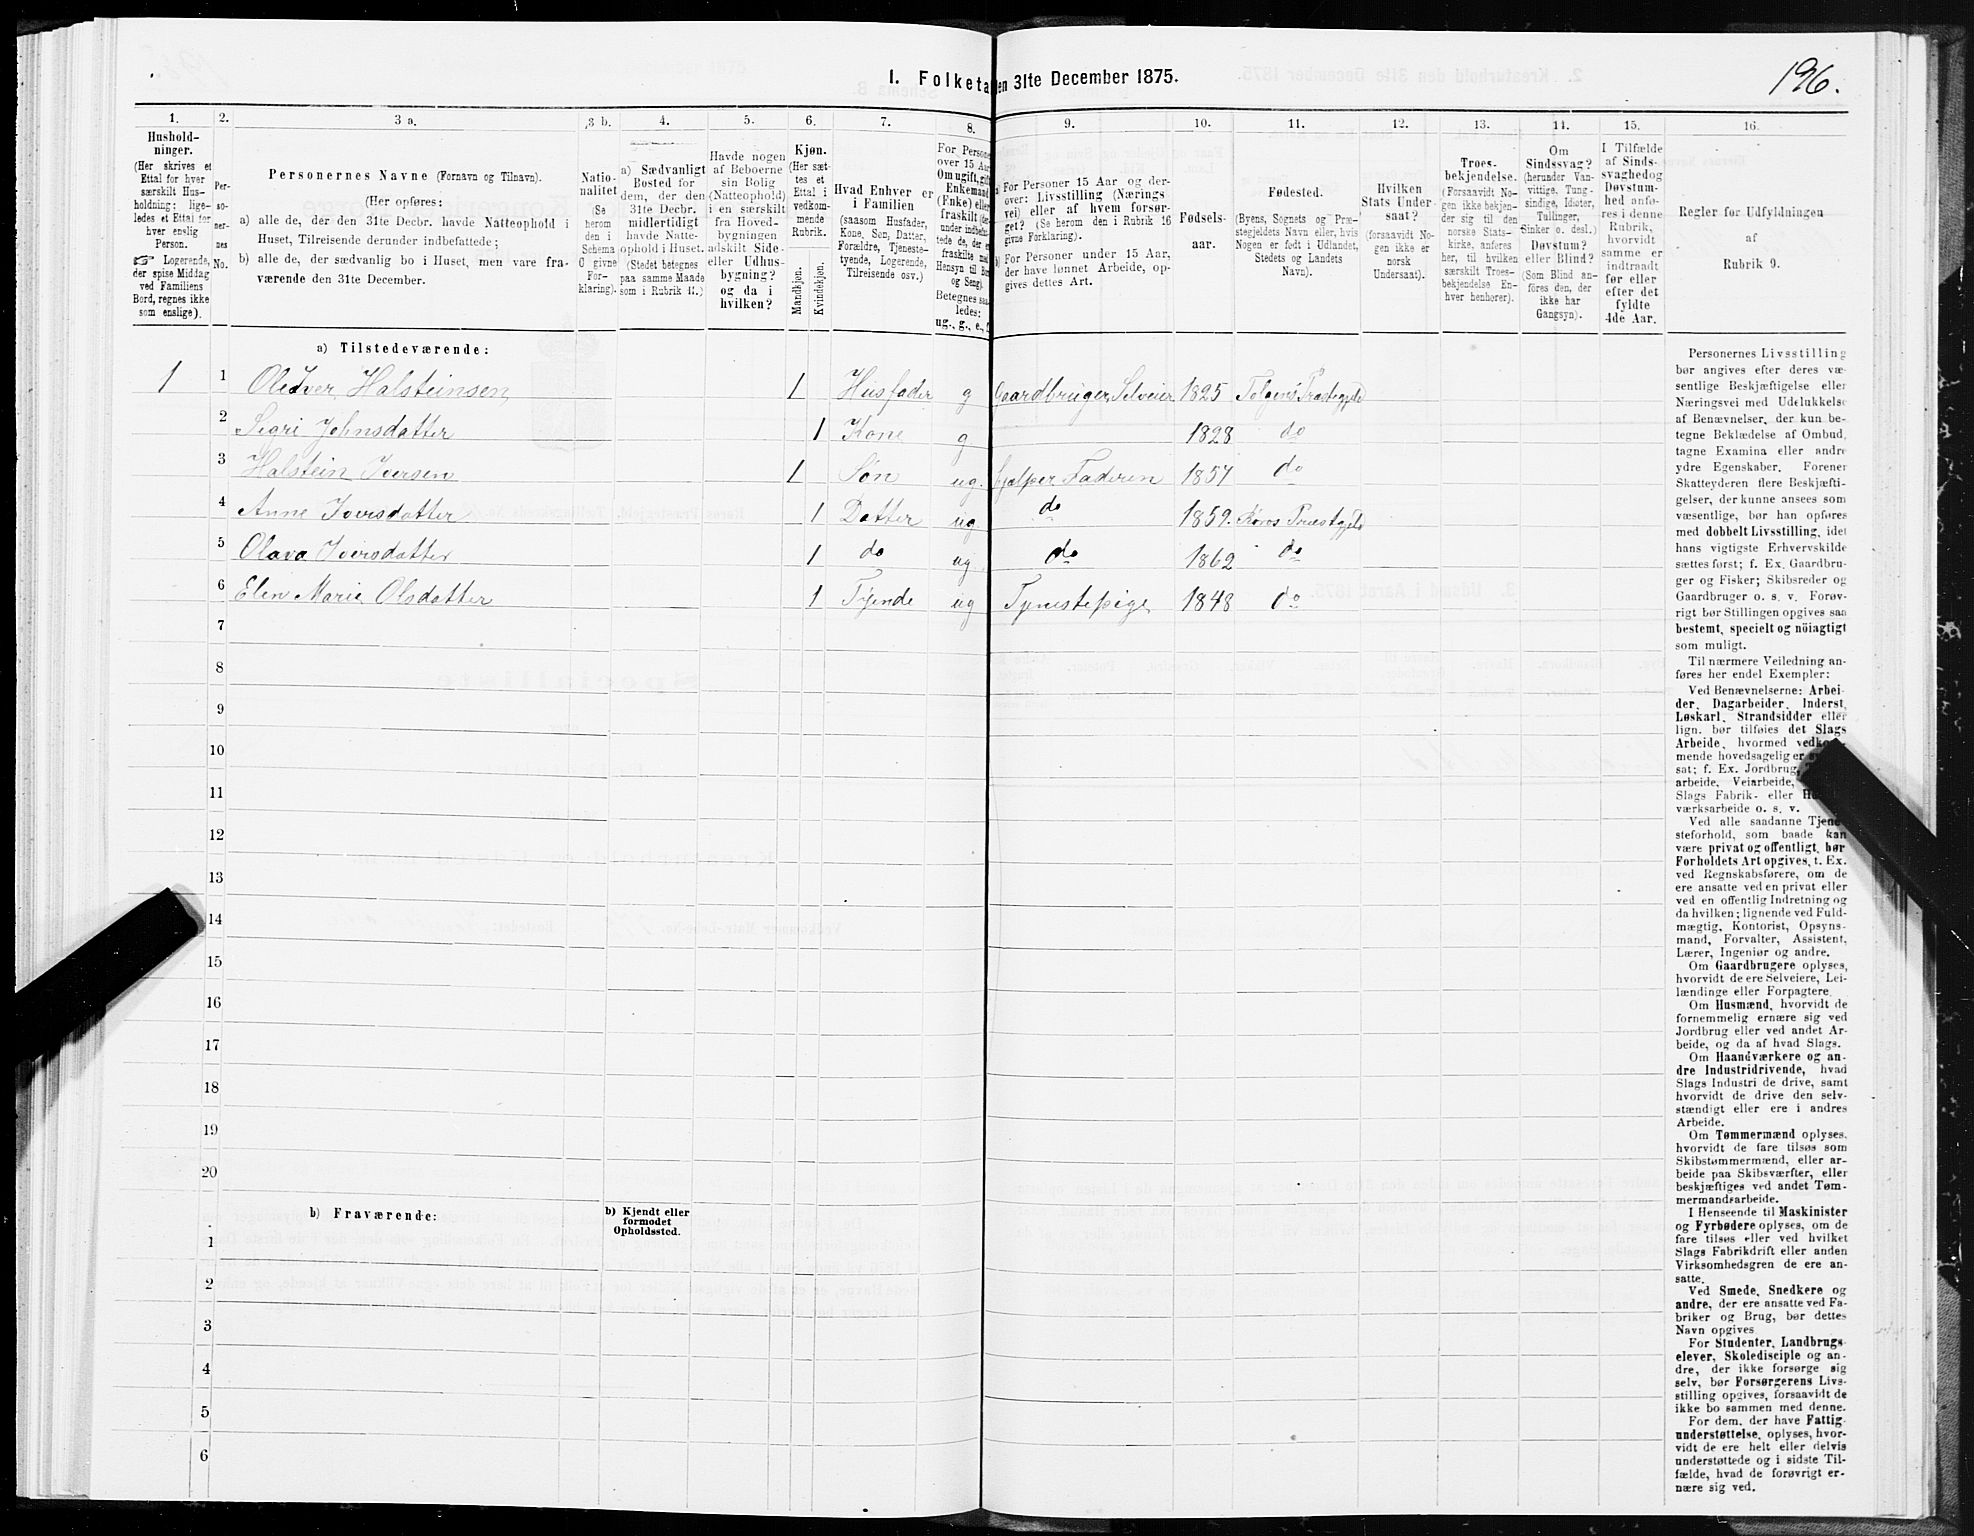 196.
1. Folketa en 31te December 1875.
1. 2. 3 a. 3 b. 4. 5. 6. 7. 8. 9. 10. 11. 12. 13. 14. 15. 16.
Hushold-
ninger.
(Her skrives et
Ettal for hver
særskilt Hus-
holdning; lige-
ledes et Ettal for
hver enslig
Person.
☞ Logerende,
der spise Middag
ved Familiens
Bord, regnes ikke
som enslige).
Per-
so-
ner-
nes
No.
Personernes Navne (Fornavn og Tilnavn).
(Her opføres:
a) alle de, der den 31te Decbr. havde Natteophold i
Huset, Tilreisende derunder indbefattede;
b) alle de, der sædvanlig bo i Huset, men vare fra-
værende den 31te December.
Natio-
nalitet
(Se
herom
den i
Schema
C givne
For-
klaring).
a) Sædvanligt
Bosted for
dem, der den
31te Decbr.
midlertidigt
havde Natte-
ophold i Huset.
(Stedet betegnes
paa samme Maade
som i Rubrik 11.)
Havde nogen
af Beboerne
sin Bolig
(Natteophold)
i en særskilt
fra Hoved-
bygningen
adskilt Side-
eller Udhus-
bygning?
og da i
hvilken?
Kjøn.
(Her sæt-
tes et
Ettal i
vedkom-
mende
Rubrik.
Mandkjøn.
Kvindekjøn.
Hvad Enhver er
i Familien
(saasom Husfader,
Kone, Søn, Datter,
Forældre, Tjeneste-
tyende, Logerende,
Tilreisende osv.)
For Persone
over 15 Aar
Om ugift, gift
Enkemand
(Enke) eller
fraskilt
Betegnes saa-
ledes:
ug., g., e., f.
a) For Personer 15 Aar og der-
over: Livsstilling (Nærings-
vei) eller af hvem forsør-
get? (Se herom den i Rubrik 16
givne Forklaring).
b) For Personer under 15 Aar,
der have lønnet Arbeide, op-
gives dettes Art.
Fødsels-
aar.
Fødested.
(Byens, Sognets og Præ-
stegjeldets Navn eller, hvis
Nogen er født i Udlandet,
Stedets og Landets
Navn).
Hvilken
Stats Under-
saat?
(forsaavidt No-
gen ikke er
norsk
Undersaat).
Troes-
bekjendelse.
(Forsaavidt No-
gen ikke bekjen-
der sig til den
norske Stats-
kirke, anføres
her, til hvilken
særskilt Troes-
bekjendelse En-
hver henhører).
Om
Sindssvag?
(herunder Van-
vittige, Tung-
sindige, Idioter,
Tullinger,
Sinker o. desl.)
Døvstum?
eller Blind?
(Som Blind an-
føres den, der
ikke har
Gangsyn).
I Tilfælde
af Sinds-
svaghed og
Døvstum-
hed anfø-
res i denne
Rubrik,
hvorvidt
samme er
indtraadt
før eller
efter det
fyldte
4de Aar.
Regler for Udfyldningen
af
Rubrik 9.
a) Tilstedeværende:
1 1 Ole Iver Halsteinsen, 1 Husfader g Gaardbruger, Selveier 1825 Tolgens Præstegjeld
2 Sigri Johnsdatter 1 Kone g 1828 do
3 Halstein Iversen 1 Søn ug. hjælper Faderen 1857 do
4 Anne Iversdatter 1 Datter ug do 1859. Røros Præstgjeld
5 Olava Iversdatter 1 do ug. do 1862 do
6 Elen Marie Olsdatter 1 Tjende ug Tjenestepige 1848 do
7
8
9
10
11
12
13
14
15
16
17
18
19
20
b) Fraværende:
b) Kjendt eller
formodet
Opholdssted.
1
2
3
4
5
6
Personernes Livsstilling
bør angives efter deres væ-
sentlige Beskjæftigelse eller
Næringsvei med Udelukkelse
af Benævnelser, der kun be-
tegne Beklædelse af Ombud,
tagne Examina eller andre
ydre Egenskaber. Forener
Skatteyderen flere Beskjæfti-
gelser, der kunne ansees som
væsentlige, bør han opføres
med dobbelt Livsstilling, idet
hans vigtigste Erhvervskilde
sættes først; f. Ex. Gaardbru-
ger og Fisker; Skibsreder og
Gaardbruger o. s. v. Forøv-
rigt bør Stillingen opgives saa
bestemt, specielt og nöiagtigt
som muligt.
Til nærmere Veiledning an-
føres her endel Exempler:
Ved Benævnelserne: Arbei-
der, Dagarbeider, Inderst,
Løskarl, Strandsidder eller
lign. bør tilføies det Slags
Arbeide, hvormed vedko
mende hovedsagelig er
sat; f. Ex. Jordbrug,
arbeide, Veiarbeide,
Slags Fabrik- eller
værksarbeide o. s. v.
Ved alle saadanne Tjene
steforhold, som baade kan
være privat og offentligt, bør
Forholdets Art opgives, t. Ex.
ved Regnskabsførere, om de
ere ansatte ved en privat eller
ved en offentlig Indretning og
da hvilken; lignende ved Fuld-
mægtig, Kontorist, Opsyns-
mand, Forvalter, Assistent,
Lærer, Ingeniør og andre.
Om Gaardbrugere oplyses,
hvorvidt de ere Selveiere, Lei-
lændinge eller Forpagtere.
Om Husmænd, hvorvidt de
fornemmelig ernære sig ved
Jordbrug eller ved andet Ar-
beide, og da af hvad Slags.
Om Haandværkere og an-
dre Industridrivende, hvad
Slags Industri de drive, samt
hvorvidt de drive den selv-
stændigt eller ere i andres
Arbeide.
Om Tømmermænd oplyses,
hvorvidt de fare tilsøs som
Skibstømmermænd, eller ar-
beide paa Skibsværfter, eller
beskjæftiges ved andet Tøm-
mermandsarbeide.
I Henseende til Maskinister
og Fyrbødere oplyses, om de
fare tilsøs eller ved hvilket
Slags Fabrikdrift eller anden
Virksomhedsgren de ere an-
satte.
Ved Smede, Snedkere og
andre, der ere ansatte ved Fa-
briker og Brug, bør dettes
Navn opgives
For Studenter, Landbrugs-
elever, Skoledisciple og an-
dre, der ikke forsørge sig
selv, bør Forsørgerens Livs-
stilling opgives, forsaavidt de
ikke bo sammen med denne.
For dem, der have Fattig-
understøttelse, oplyses, hvor-
vidt de ere helt eller delvis
understøttede og i sidste Til-
fælde, hvad de forøvrigt er-
nære sig ved.